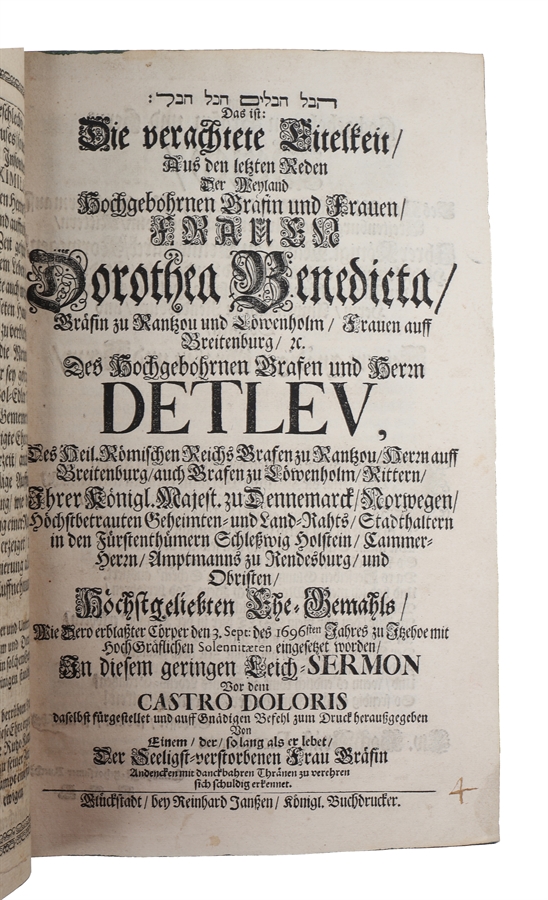 הבל הבלים הכל הבל:
Das ist:
Die verachtete Eitelkeit/
Aus den letzten Reden
Der Weyland
Hochgebohrnen Gräfin und Frauen/
FRAUEN
Dorothea Benedicta/
Gräfin zu Rantzou und Löwenholm/ Frauen auff
Breitenburg/ ꝛc.
Des Hochgebohrnen Grafen und Herrn
DETLEV,
Des Heil. Römischen Reichs Grafen zu Rantzou/Herrn auff
Breitenburg/auch Grafen zu Löwenholm/Rittern/
Ihrer Königl. Majest. zu Dennemarck/Norwegen/
Höchstbetrauten Geheimten-und Land-Rahts/ Stadthaltern
in den Fürstenthümern Schleßwig Holstein/ Cammer-
Herrn/ Amptmanns zu Rendesburg/ und
Obristen/
Höchstgeliebten Ehe-Gemahls/
Wie Dero erblaßter Cörper den 3. Sept: des 1696sten Jahres zu Itzehoe mit
HochGräflichen Solennitæten eingesetzet worden/
In diesem geringen Leich-SERMON
Vor dem
CASTRO DOLORIS
daselbst fürgestellet und auff Gnädigen Befehl zum Druck heraußgegeben
Von
Einem/ der/ so lang als er lebet/
Der Seeligst-verstorbenen Frau Gräfin
Andencken mit danckbahren Thränen zu verehren
sich schuldig erkennet.
Glückstadt/ bey Reinhard Janßen/ Königl. Buchdrucker.
4